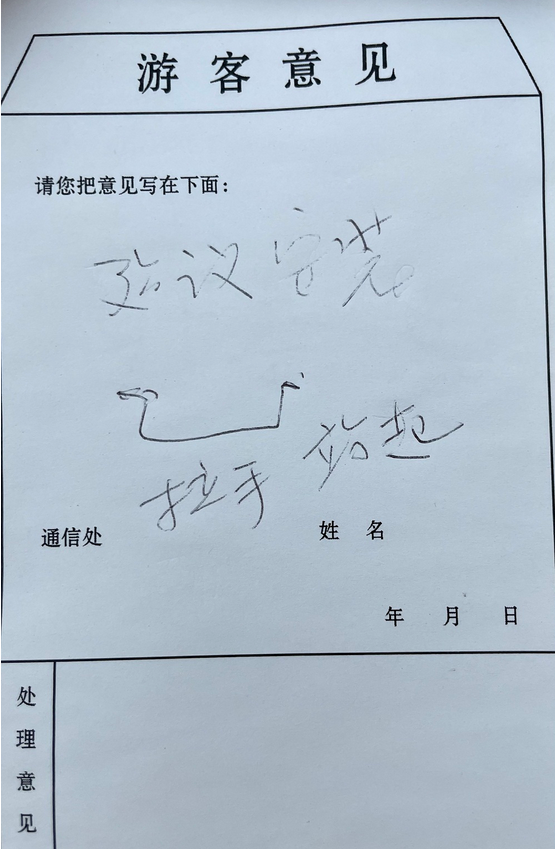 游客意见
请您把意见写在下面：
建议安装
站起
拉手
通信处 姓名
年 月 日
处理意见